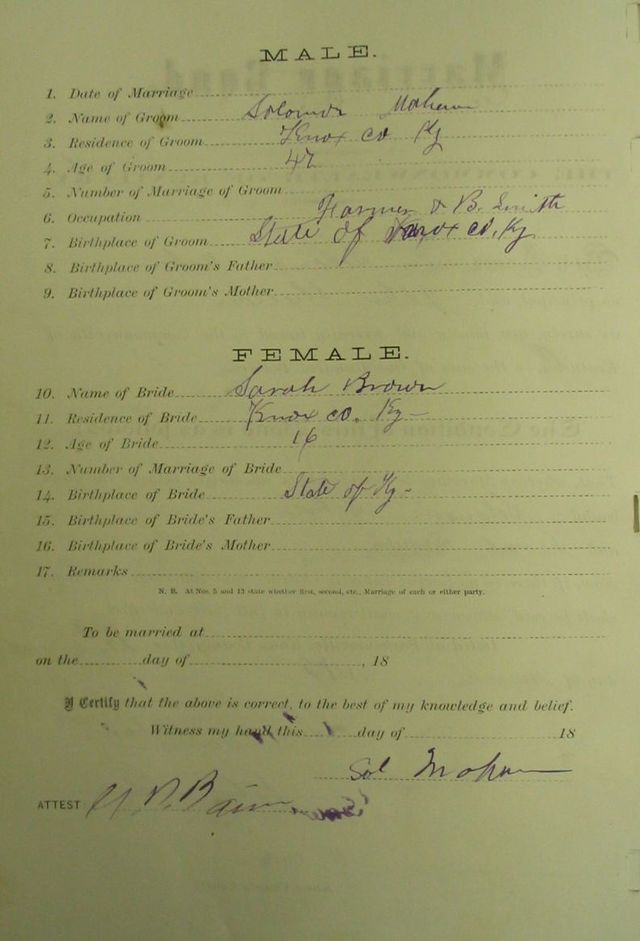 MALE.
1. Date of Marriage
2. Name of Groom Solomon Mahan
3. Residence of Groom Knox co Ky
4. Age of Groom 47
5. Number of Marriage of Groom
6. Occupation Farmer & B. Smith
7. Birthplace of Groom State of Knox co, Ky
8. Birthplace of Groom's Father
9. Birthplace of Groom's Mother
FEMALE.
10. Name of Bride Sarah Brown
11. Residence of Bride Knox co. Ky-
12. Age of Bride 16
13. Number of Marriage of Bride
14. Birthplace of Bride State of Ky-
15. Birthplace of Bride's Father
16. Birthplace of Bride's Mother
17. Remarks
N. B. At Nos. 5 and 13 state whether first, second, etc., Marriage of each or either party.
To be married at
on the day of , 18
I Certify that the above is correct, to the best of my knowledge and belief.
Witness my hand this day of 18
Sol Mahan
ATTEST